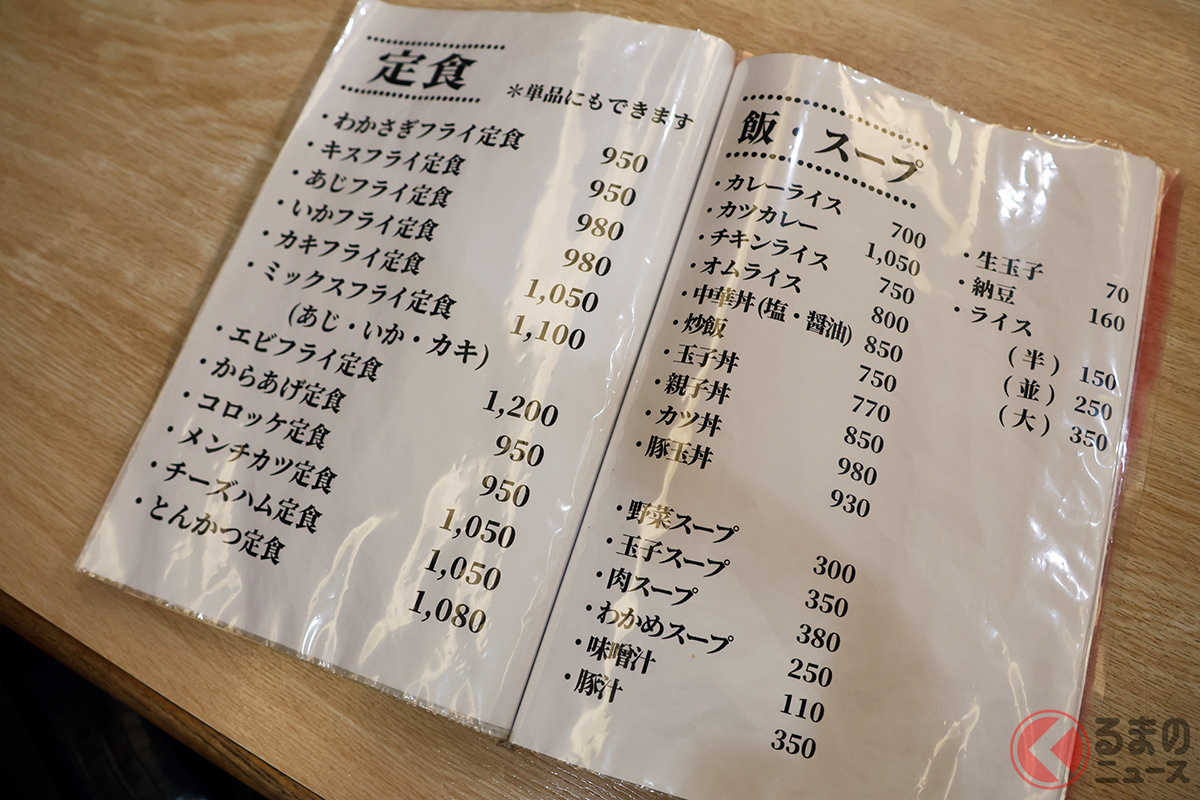 定食
＊単品にもできます
・わかさぎフライ定食 950
・キスフライ定食 950
・あじフライ定食 980
・いかフライ定食 980
・カキフライ定食 1,050
・ミックスフライ定食 1,100
(あじ・いか・カキ)
・エビフライ定食 1,200
・からあげ定食 950
・コロッケ定食 950
・メンチカツ定食 1,050
・チーズハム定食 1,050
・とんかつ定食 1,080
飯・スープ
・カレーライス 700
・カツカレー 1,050
・チキンライス 750
・オムライス 800
・中華丼(塩・醤油) 850
・炒飯 750
・玉子丼 770
・親子丼 850
・カツ丼 980
・豚玉丼 930
・野菜スープ 300
・玉子スープ 350
・肉スープ 380
・わかめスープ 250
・味噌汁 110
・豚汁 350
・生玉子 70
・納豆 160
・ライス
(半) 150
(並) 250
(大) 350
くるまの
ニュース